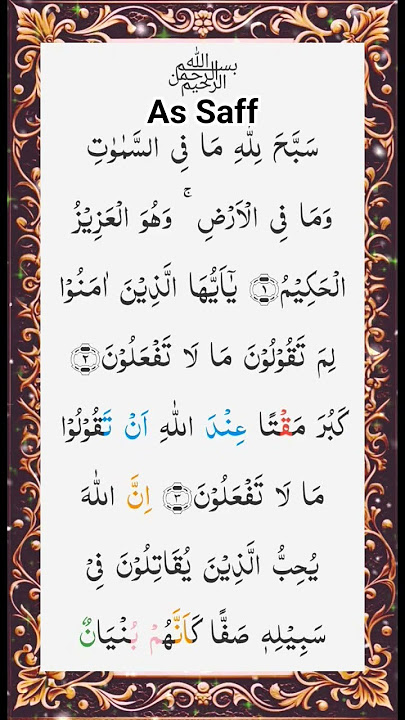 بسم الله الرحمن الرحيم
As Saff
سَبَّحَ لِلّٰهِ مَا فِى السَّمٰوٰتِ
وَمَا فِى الْاَرْضِ ۚ وَهُوَ الْعَزِيْزُ
الْحَكِيْمُ ۝١ يٰٓاَيُّهَا الَّذِيْنَ اٰمَنُوْا
لِمَ تَقُوْلُوْنَ مَا لَا تَفْعَلُوْنَ ۝٢
كَبُرَ مَقْتًا عِنْدَ اللّٰهِ اَنْ تَقُوْلُوْا
مَا لَا تَفْعَلُوْنَ ۝٣ اِنَّ اللّٰهَ
يُحِبُّ الَّذِيْنَ يُقَاتِلُوْنَ فِيْ
سَبِيْلِهٖ صَفًّا كَاَنَّهُمْ بُنْيَانٌ